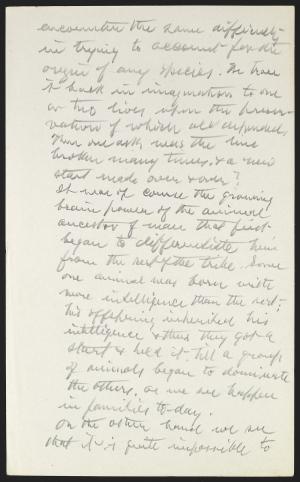 encounter the same difficulty
in trying to account for the
origin of any species. We trace
it back in imagination to one
or two lives upon the preser-
vation of which all depended
Then one asks was the line
broken many times, & a new
start made over & over?
It was of course the growing
brain power of the animal
ancestor of man that first
began to differentiate him
from the rest of the tribe. Some
one animal was born with
more intelligence than the rest;
his offspring inherited his
intelligence & thus they got a
start & held it till a group
of animals began to dominate
the others, as we see happen
in families to-day.
On the other hand we see
that it is quite impossible to